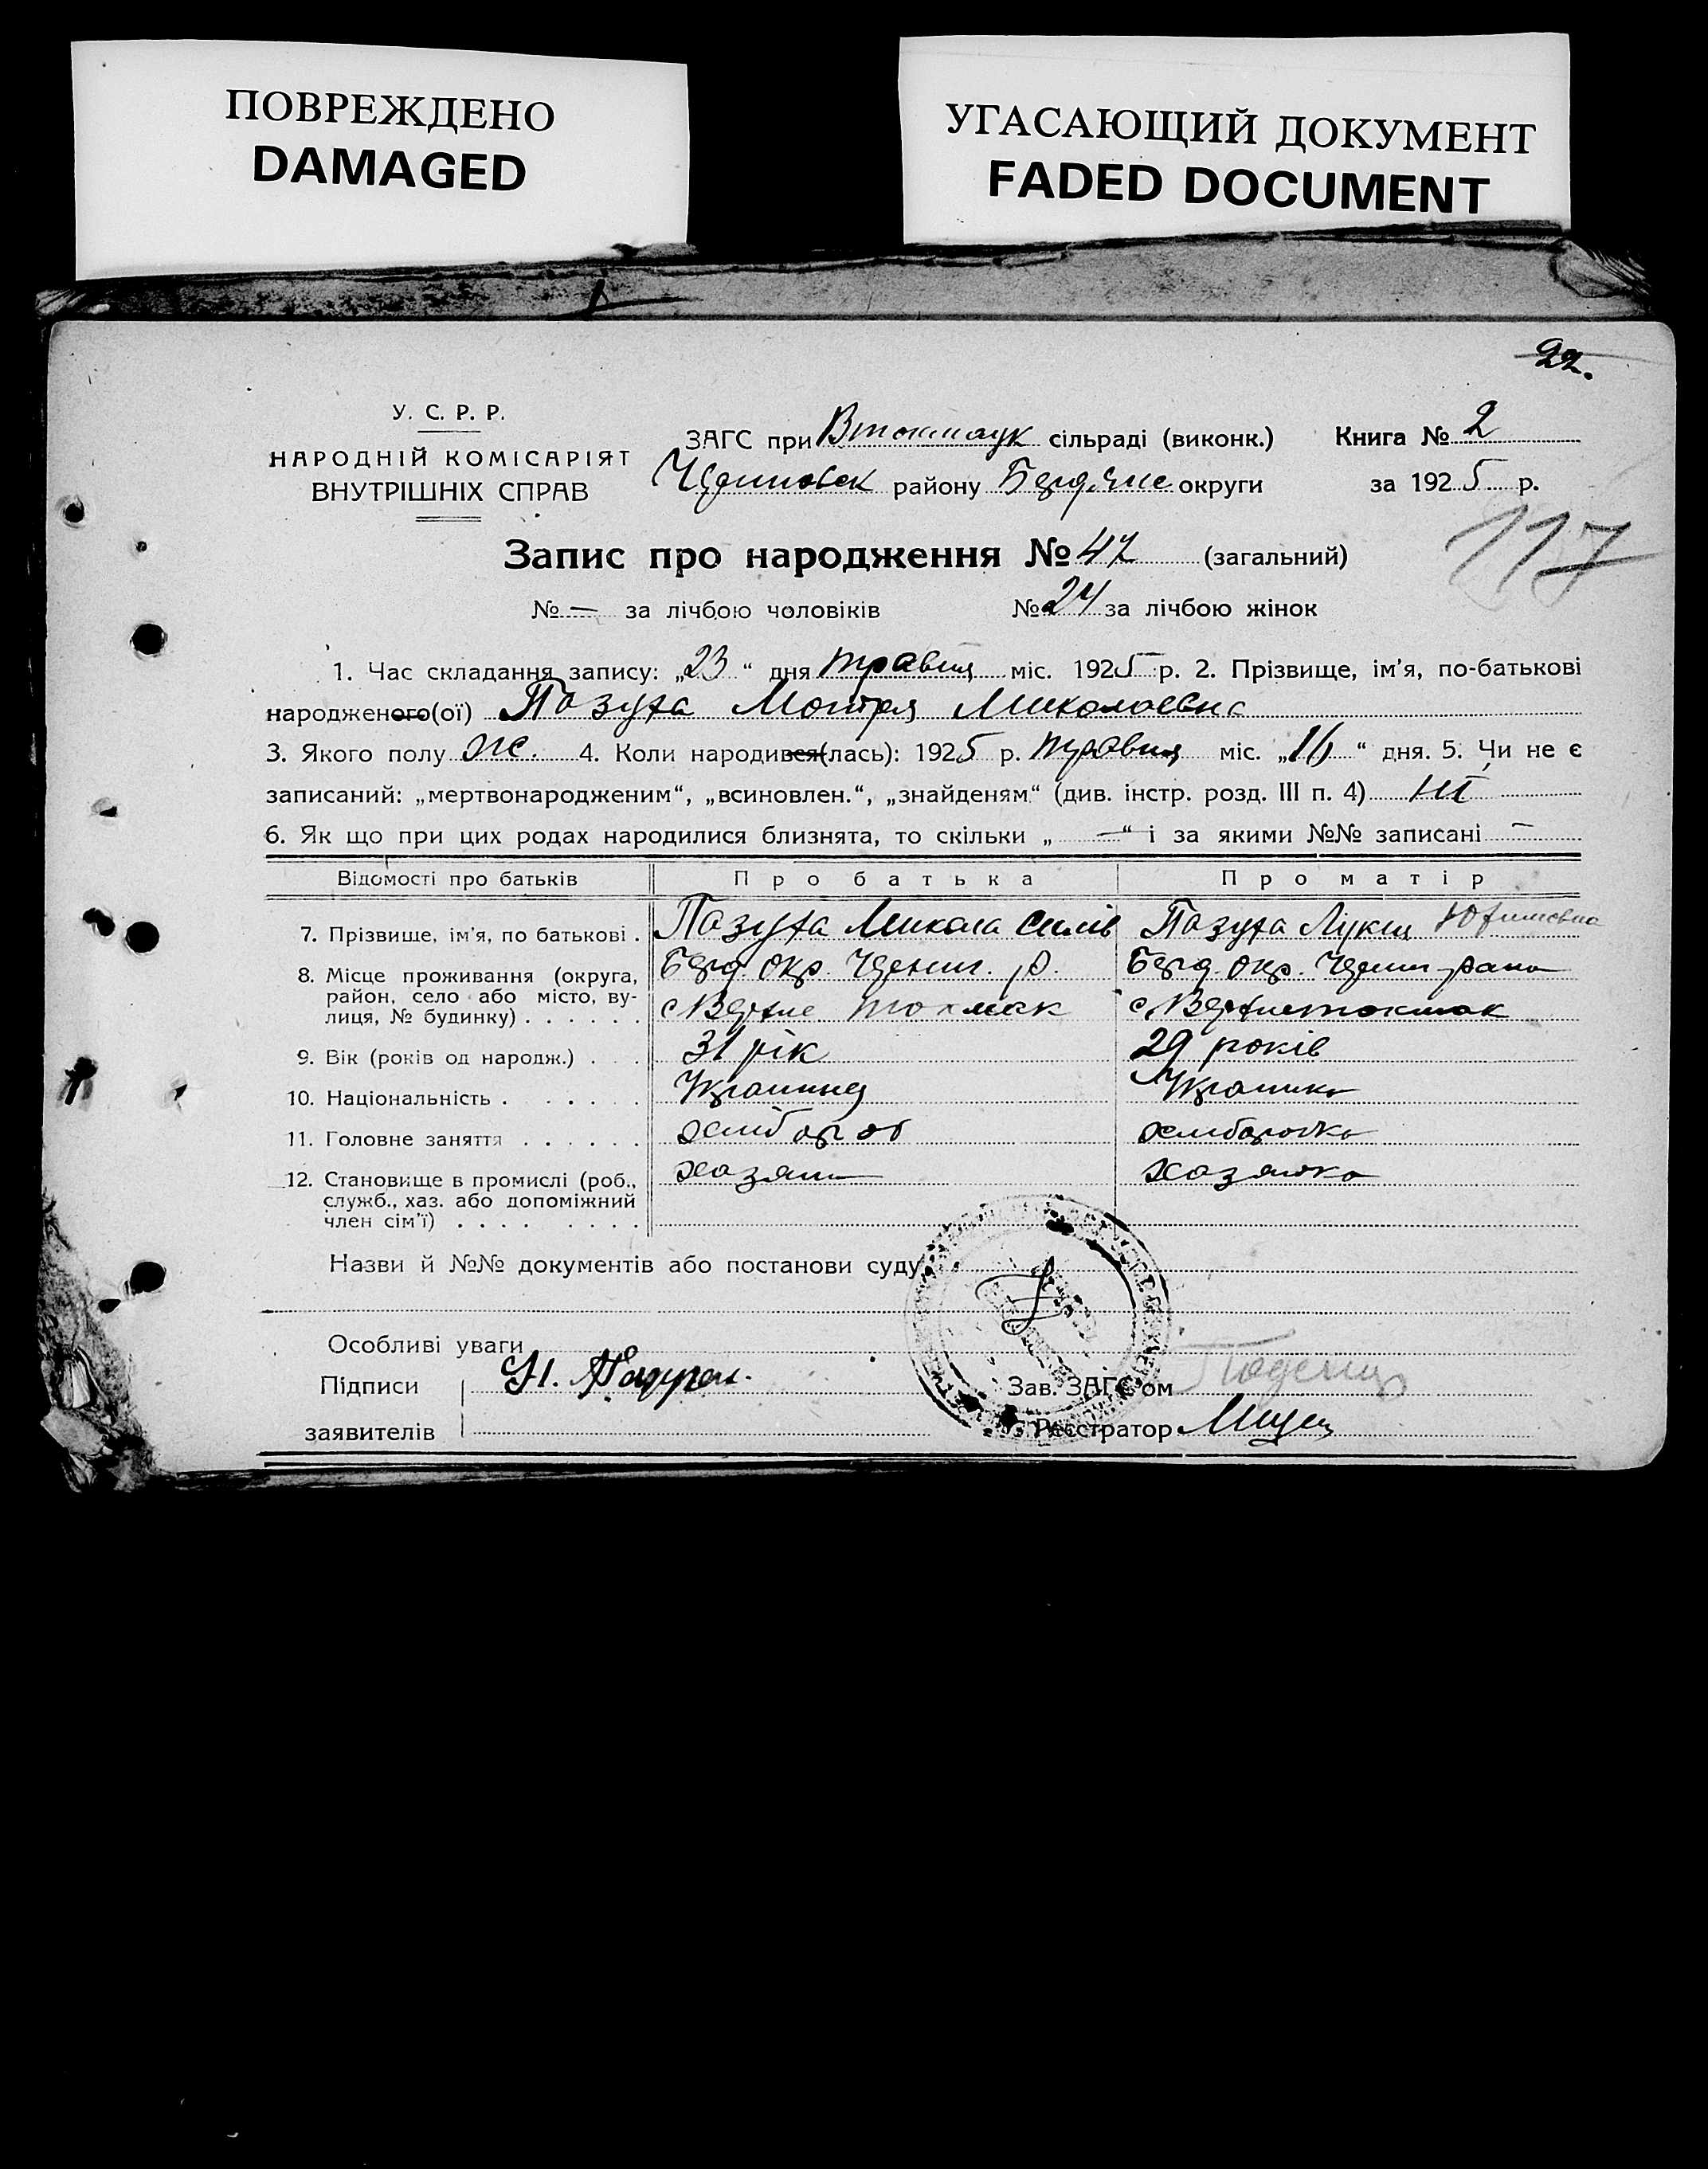 ПОВРЕЖДЕНО
DAMAGED
УГАСАЮЩИЙ ДОКУМЕНТ
FADED DOCUMENT
22.
У. С. Р. Р.
НАРОДНІЙ КОМІСАРІЯТ
ВНУТРІШНІХ СПРАВ
ЗАГС при сільраді (виконк.) Книга № 2
району округи за 1925 р.
117
Запис про народження № 47 (загальний)
№ — за лічбою чоловіків № 24 за лічбою жінок
1. Час складання запису: „23“ дня травця міс. 1925 р. 2. Прізвище, ім'я, по-батькові
народженого(ої) Пазуха Мотря Миколаевна
3. Якого полу ж. 4. Коли народився(лась): 1925 р. травця міс. „16“ дня. 5. Чи не є
записаний: „мертвонародженим“, „всиновлен.“, „знайденям“ (див. інстр. розд. III п. 4) ні
6. Як що при цих родах народилися близнята, то скільки „ — “ і за якими №№ записані —
Відомості про батьків Про батька Про матір
7. Прізвище, ім'я, по батькові . Пазуха Микола Силів Пазуха Лукия Юхимовна
8. Місце проживання (округа, район, село або місто, вулиця, № будинку) . . . . . . Берд. окр. р. Берд. окр.
с Верхне Токмак с Верхнетокмак
9. Вік (років од народж.) . . . 31 рік 29 років
10. Національність . . . . . . Українец Українка
11. Головне заняття . . . . . . хлібороб хліборобка
12. Становище в промислі (роб., служб., хаз. або допоміжний член сім'ї) . . . . . . . . хазяин хазяйка
Назви й №№ документів або постанови суду
Особливі уваги
Підписи Зав. ЗАГС'ом
заявителів Реєстратор